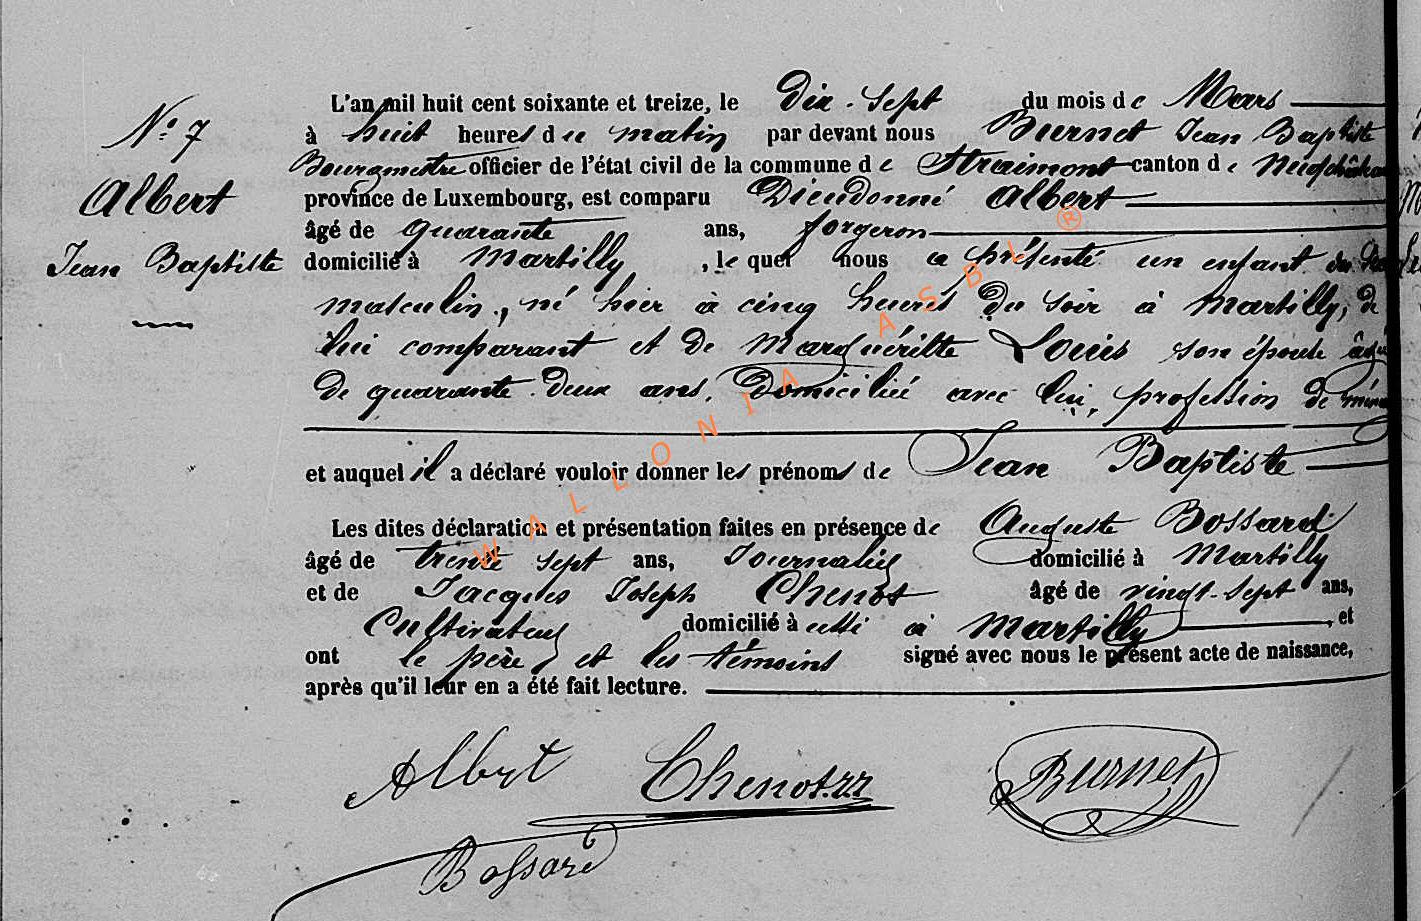 N.° 7
Albert
Jean Baptiste
L'an mil huit cent soixante et treize, le Dix-Sept du mois de Mars
à huit heures du matin par devant nous Burnet Jean Baptiste
Bourgmestre officier de l'état civil de la commune de Straimont canton de Neufchâteau
province de Luxembourg, est comparu Dieudonné Albert
âgé de quarante ans, forgeron
domicilié à Martilly, le quel nous a présenté un enfant du
masculin, né hier à cinq heures du soir à Martilly, de
lui comparant et de Marguéritte Louis son épouse âgée
de quarante-deux ans, domiciliée avec lui, profession de
et auquel il a déclaré vouloir donner les prénoms de Jean Baptiste
Les dites déclaration et présentation faites en présence de Auguste Bossard
âgé de trente sept ans, Journalier domicilié à Martilly
et de Jacques Joseph Chenot âgé de vingt-sept ans,
Cultivateur domicilié à aussi à Martilly, et
ont le père et les témoins signé avec nous le présent acte de naissance,
après qu'il leur en a été fait lecture.
Albert Chenot Burnet
Bossard
WALLONIA ASBL ®